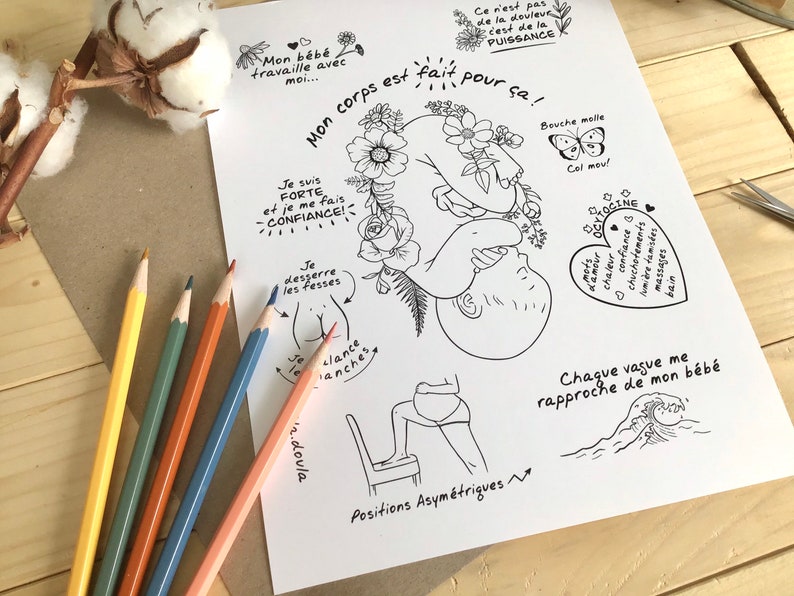 Mon bébé
travaille avec
moi...
Ce n'est pas
de la douleur
c'est de la
PUISSANCE
Mon corps est fait pour ça!
Bouche molle
Col mou!
Je suis
FORTE
et je me fais
CONFIANCE!
OCYTOCINE
mots
d'amour
chaleur
confiance
chuchotements
lumière tamisées
massages
bain
Je
desserre
les fesses
Je
Chaque vague me
rapproche de mon bébé
Positions Asymétriques